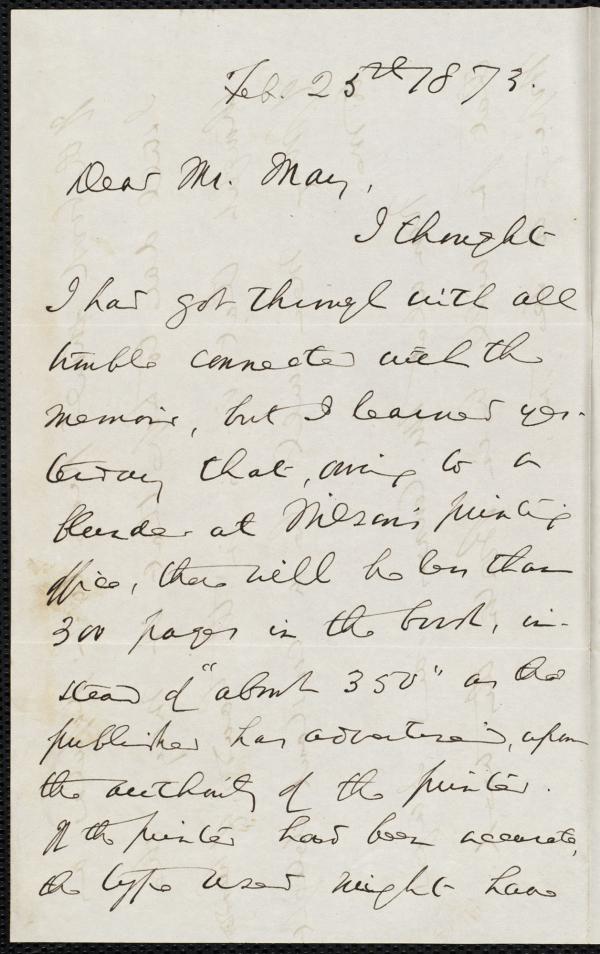 Feb. 25th 1873.
Dear Mr. May,
I thought
I had got through with all
trouble connected with the
memoir, but I learned yes-
terday that, owing to a
blunder at Wilson's printing
office, there will be less than
300 pages in the book, in-
stead of "about 350" as the
publisher has advertised, upon
the authority of the printer.
If the printer had been accurate,
the type used might have